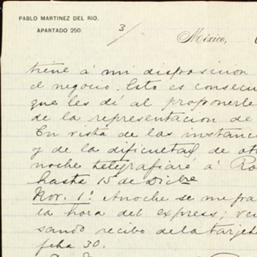 PABLO MARTINEZ DEL RIO.
APARTADO 250.
3/
México,
tiene á mi disposicion
el negocio. Esto es consecu
que les dí al proponerle
de la representacion de
En vista de las instanc
y de la dificultad de ot
noche telegrafiaré á Ro
hasta 15 de Dicbre
Nov. 1º. Anoche se me pa
la hora del express; ve
sando recibo de la tarjet
fha 30.